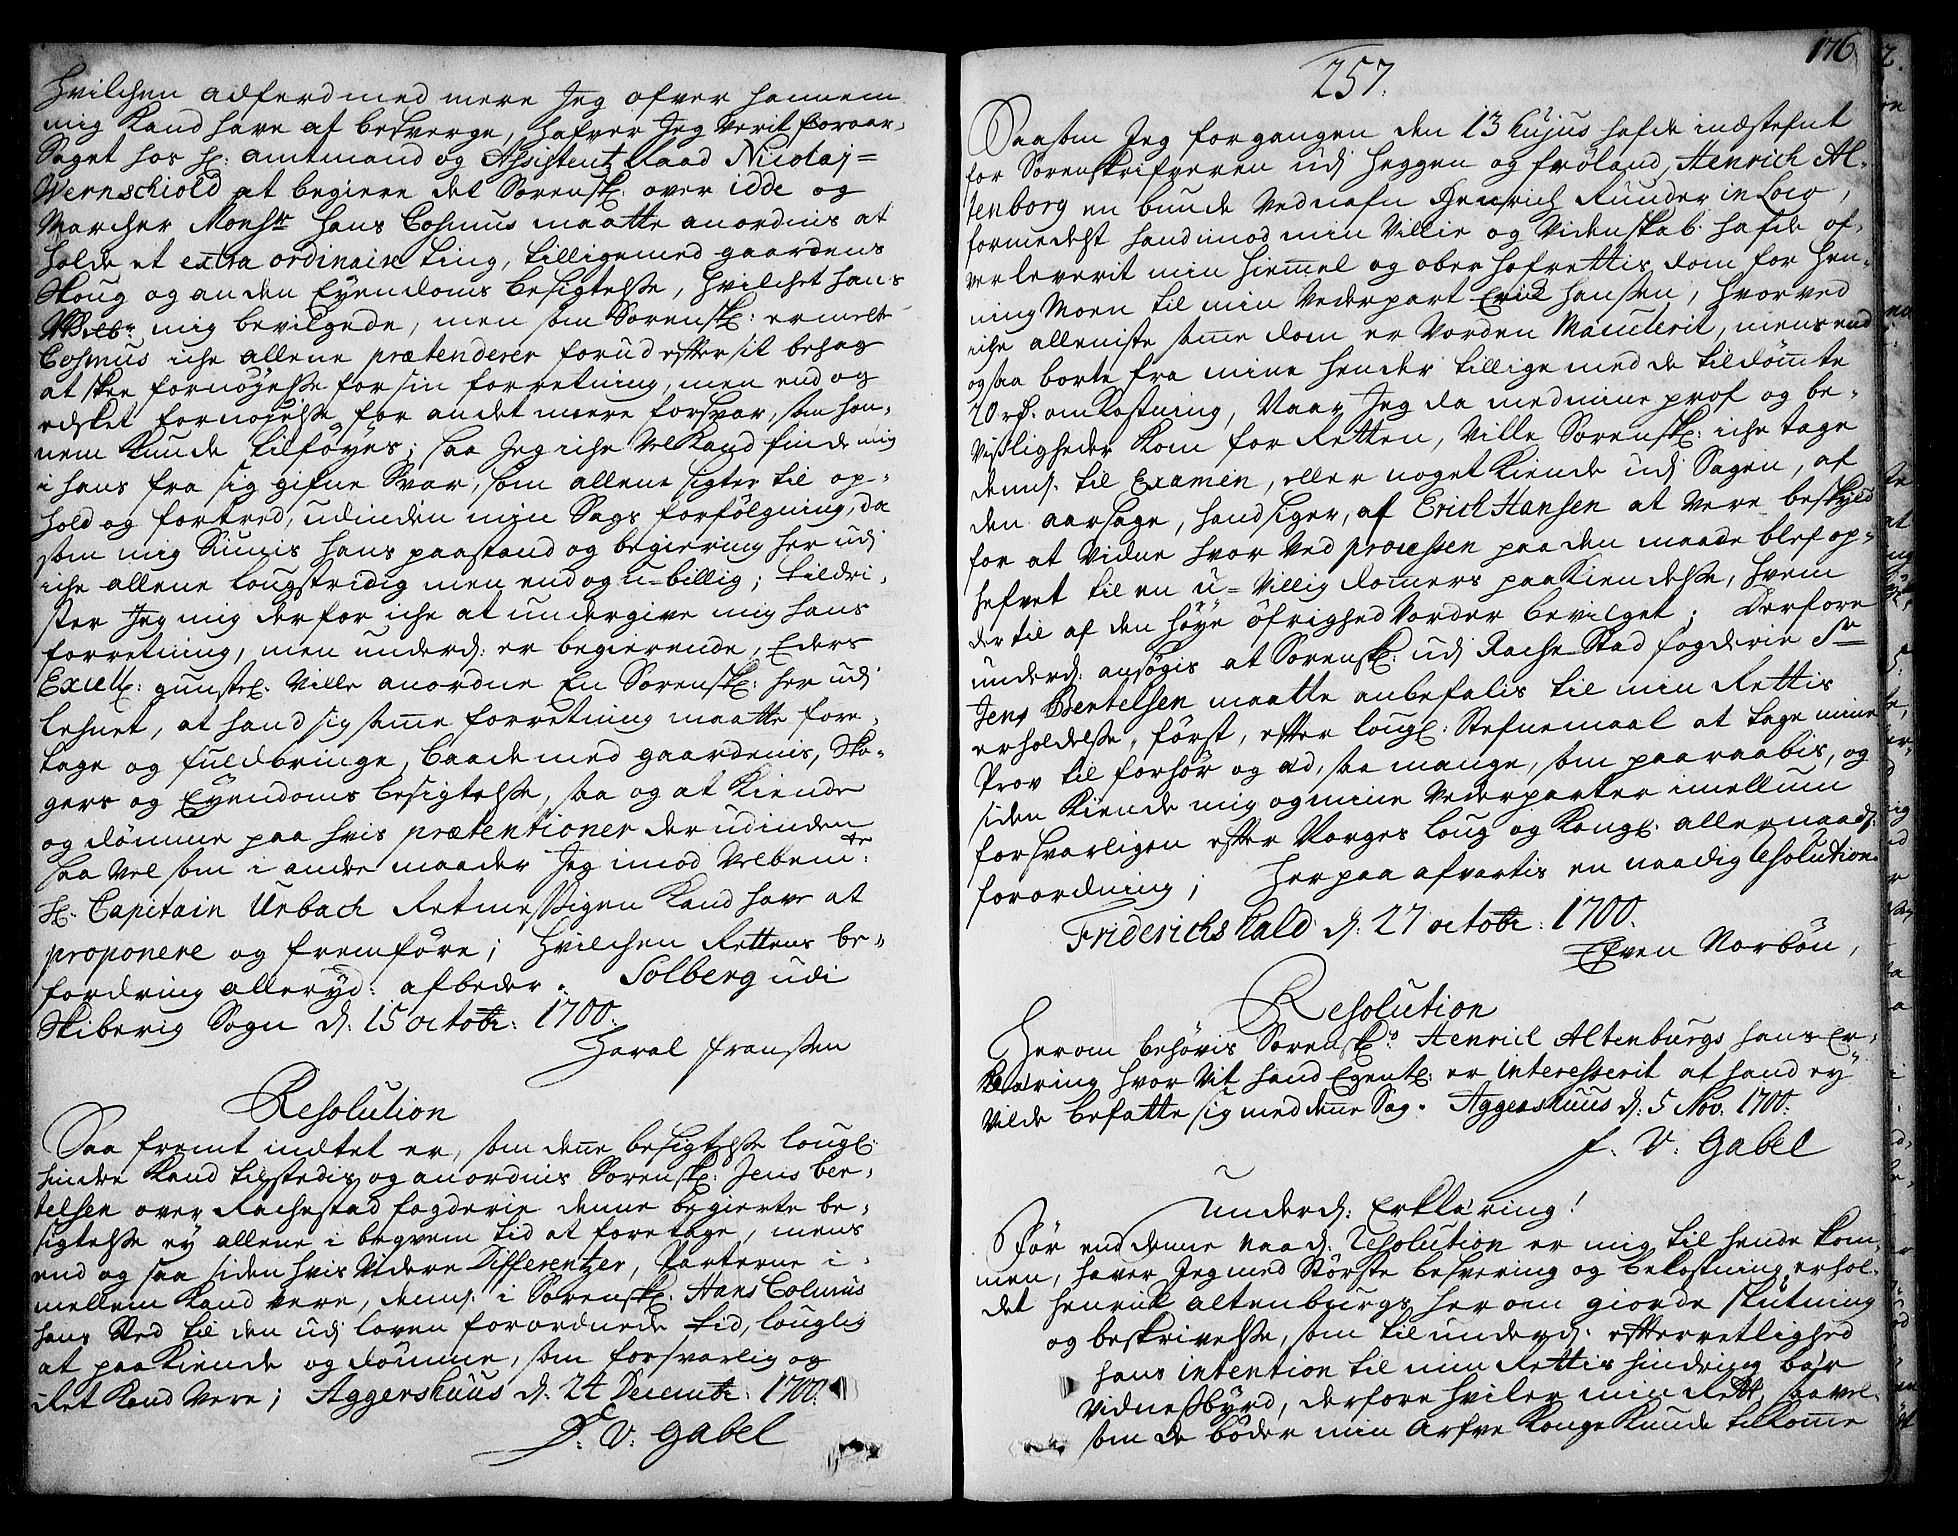 Hvilchen adferd med mere Jeg ofver hannem
mig Kand have at besverge, hafver Jeg verit foraar-
saget hos Hr: amtmand og Assistentz Raad Nicolaj=
Wernschiold at begiere det Sorenskr: over idde og
Marcher Monsr Hans Cosmus maatte anordnis at
holde et extra ordinaire ting, tillige med gaardens
Skoug og anden Eyendoms besigtelsse, hvilchet hans
mig bevilgede, men som Sorenskr: ermelte
Cosmus iche allene prætenderer forud efter sit behag
at skee fornøyelsse for sin forretning, men end og
edsket fornøyelsse for andet meere forsvar, som han-
nem kunde tilføyes; saa Jeg iche vel kand finde mig
i hans fra sig gifne Svar, som allene sigter til op-
hold og fortred, udinden min Sags forfølgning, da
som mig Siunis hans paastand og begiering her udj
iche allene lougstridig men end og u-billig; tildri-
ster Jeg mig derfor iche at undergive mig hans
forretning, men underd: er begierende, Eders
Excell: gunstel: ville anordne En Sorenskr: her udj
lehnet, at hand sig samme forretning maatte fore-
tage og fuldbringe, baade med gaardenis, Sko-
gers og Eyendoms besigtelsse, saa og at kiende
og dømme paa hvis prætentioner der udinden
saa vel som i andre maader Jeg imod velbemte:
Hr. Capitain Urbach Retmessigen kand have at
proponere og fremføre; hvilchen Rettens be-
fordring alleryd: afbeder. Solberg udi
Skiberig Sogn d: 15 octobr: 1700.
Haral franssen
Resolution
Saa fremt intet er, som denne besigtelsse lougl:
hindre kand tilstedis og anordnis Sorenskr: Jens ber-
telsen over Rachestad fogderie denne begierte be-
sigtelsse ey allene i beqvem tid at foretage, mens
end og saa siden hvis videre Differentzer, Parterne i-
mellem kand vere, dennj. i Sorenskr. Hans Colmus
hans sted til den udj loven forordnede tid, louglig
at paakiende og dømme, som forsvarlig og
Ret kand vere; Aggershuus d: 24 Decembr: 1700.
F. V: Gabel
176
257.
Saasom Jeg forgangen den 13 hujus hafde indstefnt
for Sorenskrifveren udj Heggen og frøland, Henrich Al-
tenborg en bunde ved nafn Henrich Runder in loco,
formedelst hand imod min villie og videnskab hafde of-
verleverit min hiemmel og oberhofrettis dom for Hen-
ning Moen til min vederpart Erick Hanssen, hvorved
iche alleniste samme dom er vorden Maculerit, mens end
og saa borte fra mine hender tillige med de tildømte
20 rd. omkostning, Naar Jeg da med mine prof og be-
visligheder kom for Retten, ville Sorenskr: iche tage
dennj. til Examen, eller noget kiende udj Sagen, af
den aarsage, hand siger, af Erich Hansen at vere beskyld
for at vidne hvor ved processen paa den maade blef op-
hefvet til en u-villig domers paakiendelsse, hvem
der til af den høye øfrighed vorder bevilget; Derfore
underd: ansøgis at Sorenskr: udj Rache-Stad fogderie Sr
Jens Bertelsen maatte anbefalis til min Rettis
erholdelsse, først, efter lougl: Stefnemaal at tage mine
Prov til forhør og æd, saa mange, som paaraabis, og
siden kiende mig og mine vederparter imellum
forsvarligen efter Norges loug og Kongl: allernaad:
forordning; Herpaa afvartis en naadig Resolution.
Friderichshald d: 27 octobr: 1700.
Efven Norbøn,
Resolution
Herom behøvis Sorenskrs Henrick Altenburgs hans Er-
klæring hvor vit hand Egentl: er interesserit at hand ey
vilde befatte sig med denne Sag. Aggershuus d: 5 Nov: 1700.
F. V: Gabel
Underd: Erklæring!
Før end denne naad: Resolution er mig til hende kom-
men, haver Jeg med største besvering og bekostning erhol-
det Henrick Altenburgs herom giorde slutning
og beskrivelsse, som til underd: efterretlighed
hans intention til min Rettis hindring bær
vidnessbyrd, derfore hviler min Rett, saavel-
som de bøder min Arfve Konge kunde tilkomme